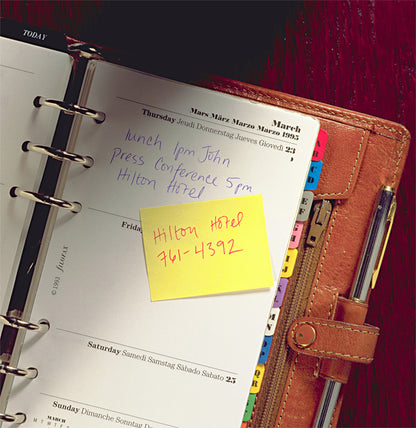 TODAY
March
Mars März Marzo Marzo 1995
Thursday Jeudi Donnerstag Jueves Giovedì 23
lunch 1pm John
Press Conference 5pm
Hilton Hotel
Frida
Hilton Hotel
761-4392
Saturday Samedi Samstag Sábado Sabato 25
Sunday Dimanche Sonntag
MARCH
M T W T F S